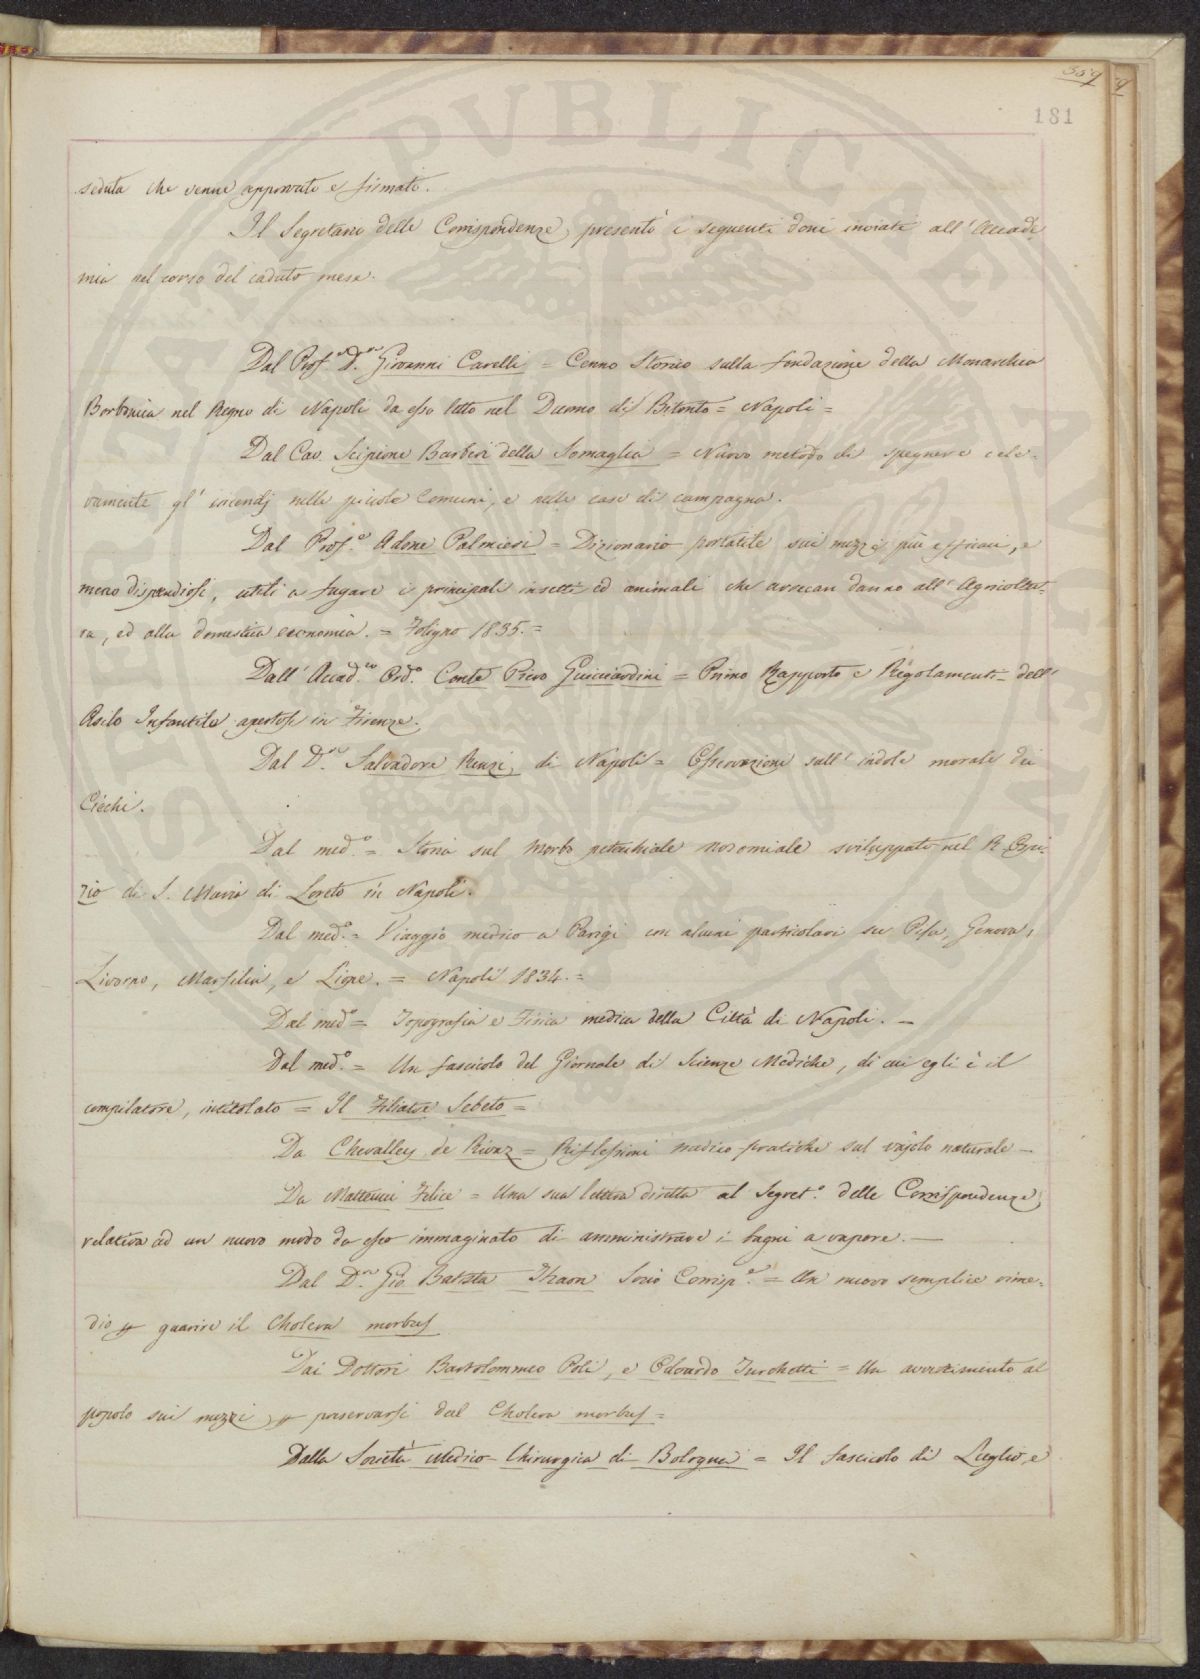 359
181
seduta che venne approvato e firmato.
Il Segretario delle Corrispondenze, presentò i seguenti doni inviati all' Accade
mia nel corso del caduto mese.
Dal Prof.e D.re Giovanni Carelli = Cenno Storico sulla fondazione della Monarchia
Borbonica nel Regno di Napoli da esso letto nel Duomo di Bitonto = Napoli =
Dal Cav. Scipione Barberi della Somaglia = Nuovo metodo di spegnere cele-
remente gl' incendj nelle piccole Comuni, e nelle case di campagna.
Dal Prof.e Adone Palmieri = Dizionario portatile sui mezzi più efficaci, e
meno dispendiosi, utili a fugare i principali insetti ed animali che arrecan danno all' Agricoltu-
ra, ed alla domestica economia. = Foligno 1835. =
Dall' Accad.co Ord.o Conte Piero Guicciardini = Primo Rapporto e Regolamenti dell'
Asilo Infantile apertosi in Firenze.
Dal D.re Salvadore Renzi, di Napoli = Osservazione sull' indole morale dei
Ciechi.
Dal med.o = Storia sul morbo petecchiale nosomiale sviluppato nel R. Ospi-
zio di S. Maria di Loreto in Napoli.
Dal med.o = Viaggio medico a Parigi con alcuni particolari su Pisa, Genova,
Livorno, Marsilia, e Lione. = Napoli 1834. =
Dal med.o = Topografia e Fisica medica della Città di Napoli. —
Dal med.o = Un fascicolo del Giornale di Scienze Mediche, di cui egli è il
compilatore, intitolato = Il Filiatre Sebeto =
Da Chevalley de Rivaz = Riflessioni medico-pratiche sul vajolo naturale —
Da Matteucci Felice = Una sua lettera diretta al Segret.o delle Corrispondenze,
relativa ad un nuovo modo da esso immaginato di amministrare i bagni a vapore. —
Dal D.re Gio. Batista Thaon Socio Corrisp.e = Un nuovo semplice rime-
dio per guarire il Cholera morbus
Dai Dottori Bartolommeo Poli, e Odoardo Turchetti = Un avvertimento al
popolo sui mezzi per preservarsi dal Cholera morbus =
Dalla Società Medico-Chirurgica di Bologna = Il fascicolo di Luglio, e